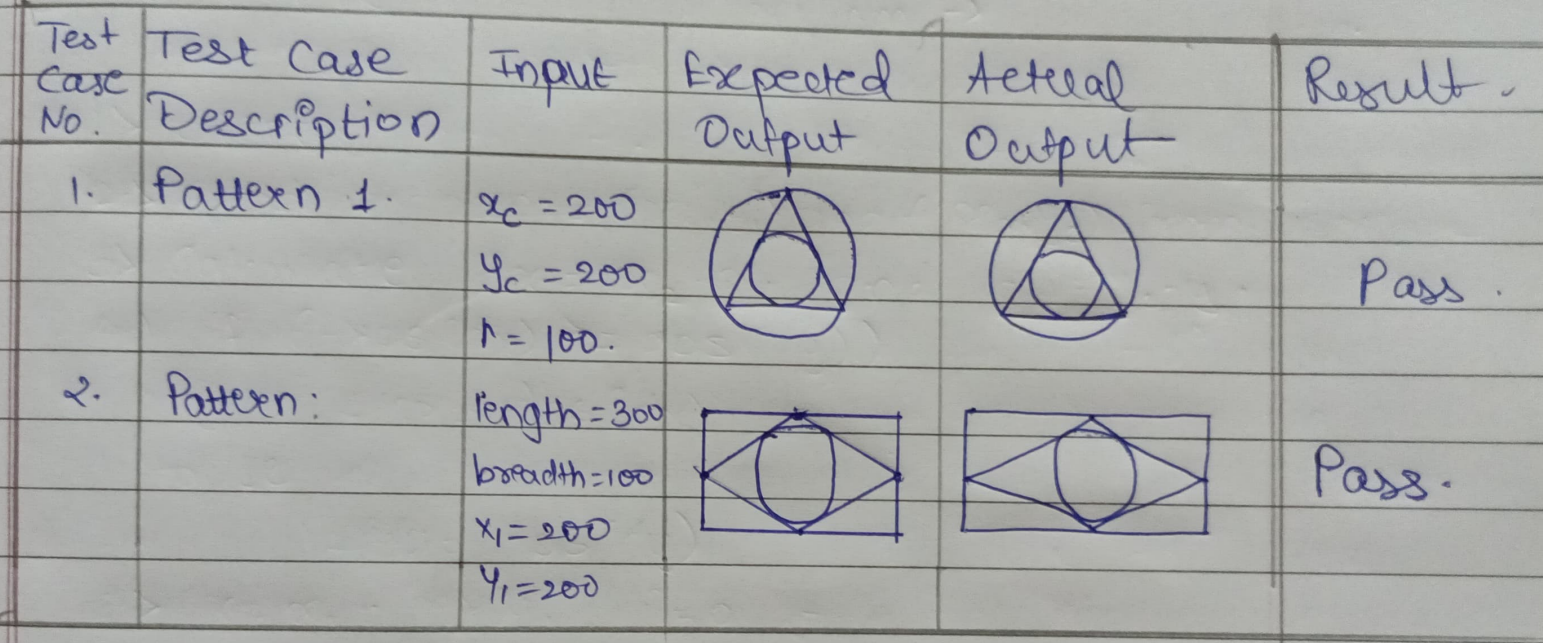 Test Case No.
Test Case Description
Input
Expected Output
Actual Output
Result.
1.
Pattern 1.
xc = 200
yc = 200
r = 100.
Pass.
2.
Pattern:
length = 300
breadth = 100
x1 = 200
y1 = 200
Pass.